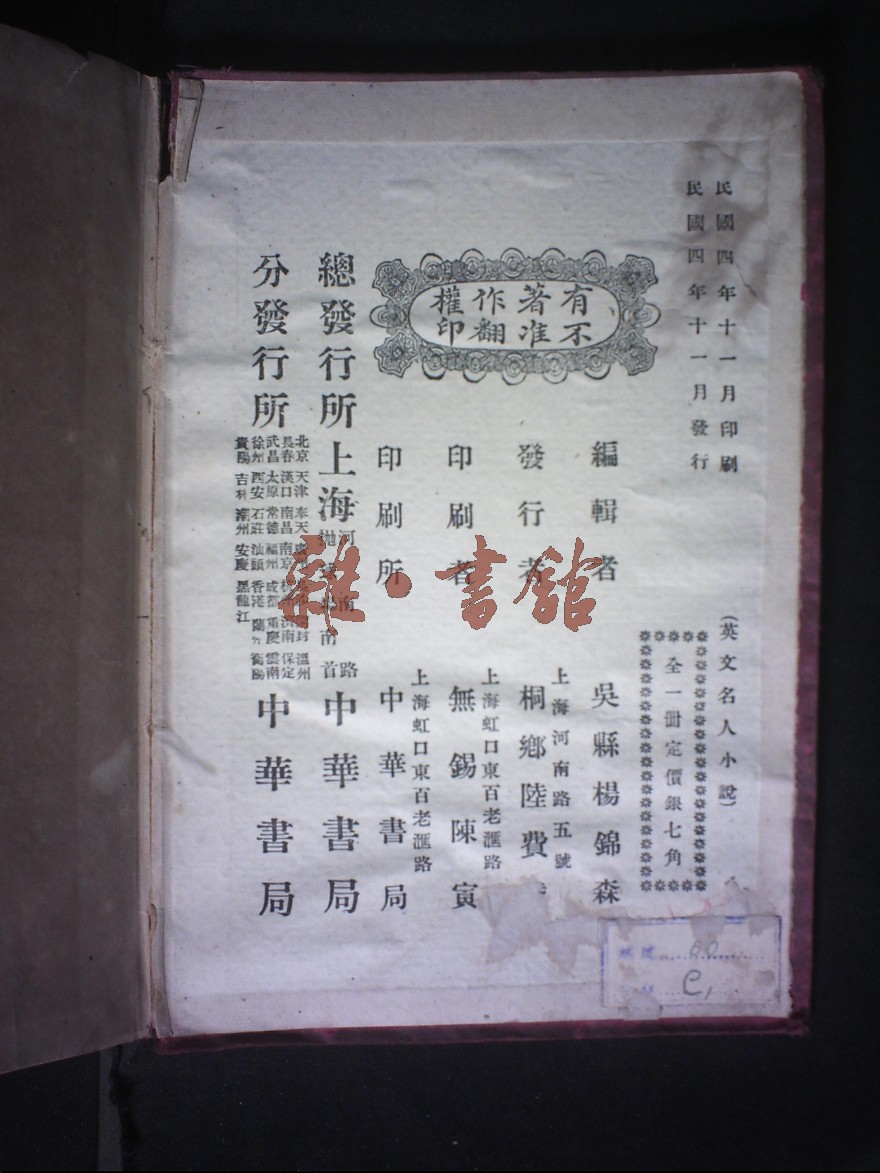 民國四年十一月印刷
民國四年十一月發行
(英文名人小說)
全一册定價銀七角
有著作權
不准翻印
編輯者 吳縣楊錦森
發行者 桐鄉陸費
上海河南路五號
印刷者 無錫陳寅
上海虹口東百老滙路
印刷所 中華書局
上海虹口東百老滙路
總發行所 上海 河南路 首 中華書局
分發行所 中華書局
北京 天津 奉天 溫州
長春 漢口 南昌 南京 濟南 保定
武昌 太原 常德 福州 成都 重慶 雲南
徐州 西安 石莊 汕頭 香港 蘭 衡陽
貴陽 吉林 潮州 安慶 黑龍江
雜·書館